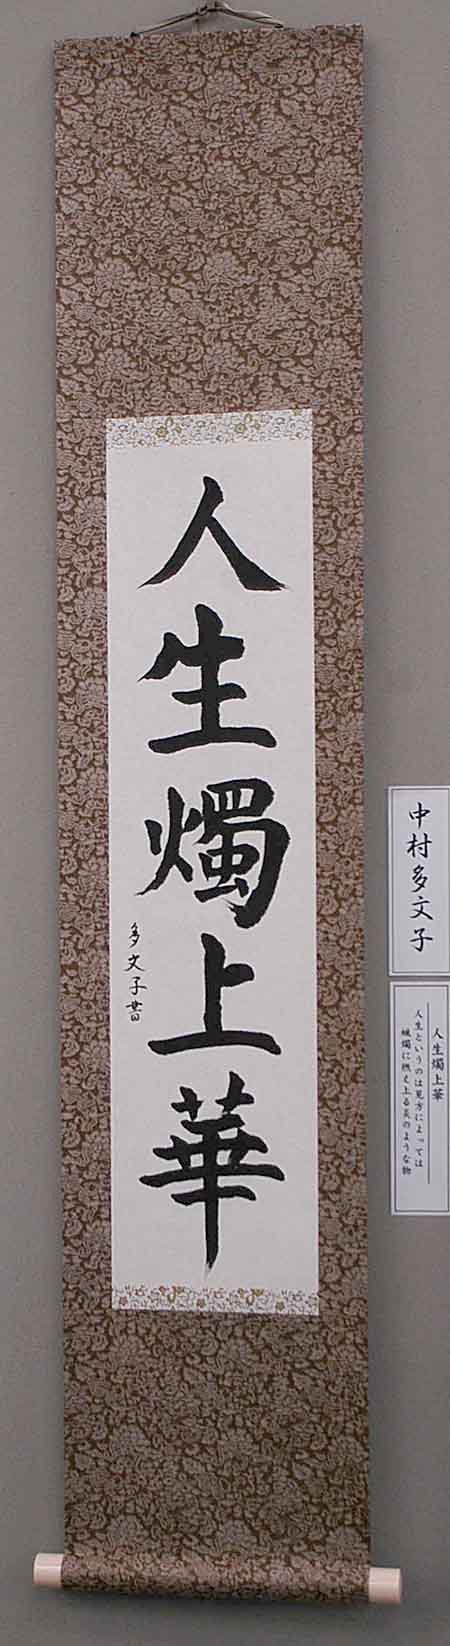 人生燭上華
多文子書
中村多文子
人生燭上華
人生というのは見方によっては
蝋燭に燃え上る炎のような物